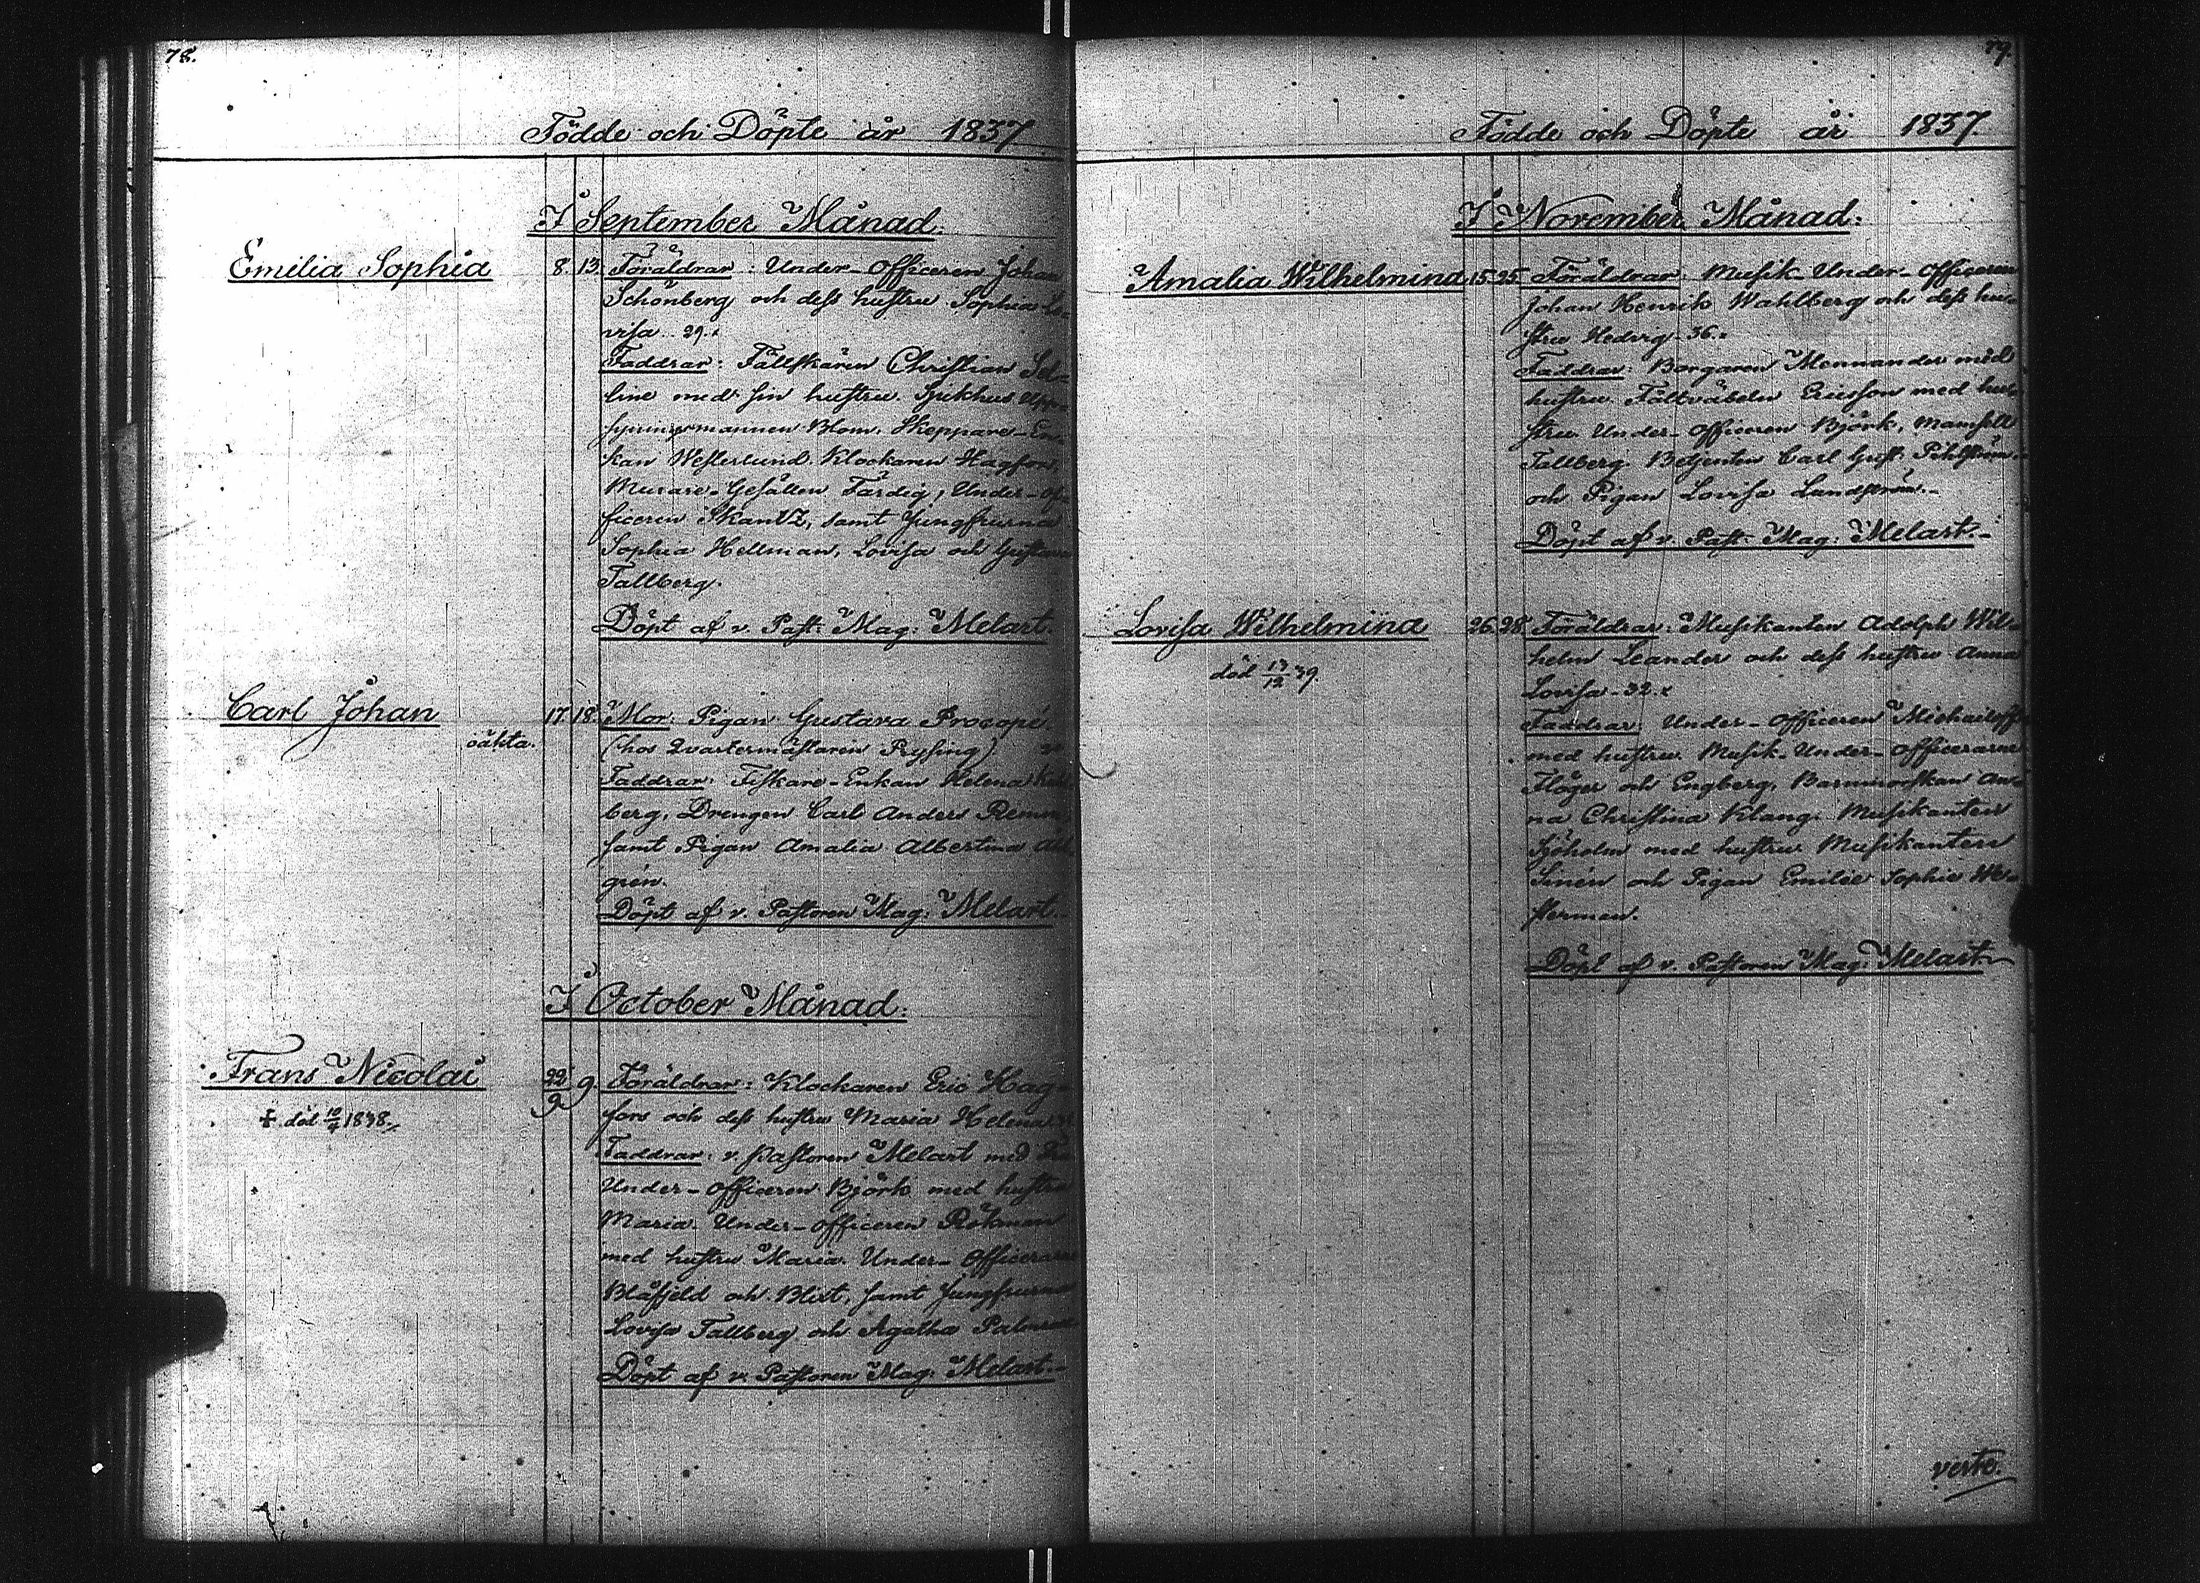 78.
Födde och Döpte år 1837
I September Månad.
Emilia Sophia 8. 13. Föräldrar: Under-Officeren Johan
Schönberg och dess hustru Sophia Lo-
visa. 29.
Faddrar: Fältskären Christian
line med sin hustru. Sjukhus Upp-
syningsmannen Blom. Skeppare-En-
kan Westerlund. Klockaren Hagfors,
Murare-Gesällen Färdig, Under-Of-
ficeren Skantz, samt Jungfrurna
Sophia Hellman, Lovisa och Gustava
Tallberg.
Döpt af v. Past. Mag. Melart.
Carl Johan 17. 18. Mor: Pigan Gustava Procopé
oäkta. (hos Qvartermästaren Rysing)
Faddrar: Fiskare-Enkan Helena
berg, Drengen Carl Anders
samt Pigan Amalia Albertina
grén.
Döpt af v. Pastoren Mag. Melart.
I October Månad.
Frans Nicolai 22/9 9. Föräldrar: Klockaren Eric Hag-
fors och dess hustru Maria Helena
† död 10/4 1838.
Faddrar: v. Pastoren Melart med
Under-Officeren Björk med hustru
Maria. Under-Officeren Rökman
med hustru Maria. Under-Officerarne
Blåfjeld och Blixt, samt Jungfrurna
Lovisa Tallberg och Agatha
Döpt af v. Pastoren Mag. Melart.
79.
Födde och Döpte år 1837.
I November Månad.
Amalia Wilhelmina 15. 25. Föräldrar: Musik-Under-Officeren
Johan Henrik Wahlberg och dess hu-
stru Hedvig. 36.
Faddrar: Borgaren Mennander med
hustru. Fältväbeln Ericsson med hu-
stru. Under-Officeren Björk, Mamsell
Tallberg. Betjenten Carl Gust. Pihlström
och Pigan Lovisa Lundström.
Döpt af v. Past. Mag. Melart.
Lovisa Wilhelmina 26. 28. Föräldrar: Musikanten Adolph Wil-
död 17/12 39. helm Leander och dess hustru Anna
Lovisa. 32.
Faddrar: Under-Officeren Michailoff
med hustru. Musik-Under-Officerarne
Flöger och Engberg, Barnmorskan An-
na Christina Klang. Musikanten
Sjöholm med hustru. Musikanten
Linén och Pigan Emilie Sophia We-
sterman.
Döpt af v. Pastoren Mag. Melart.
verte.